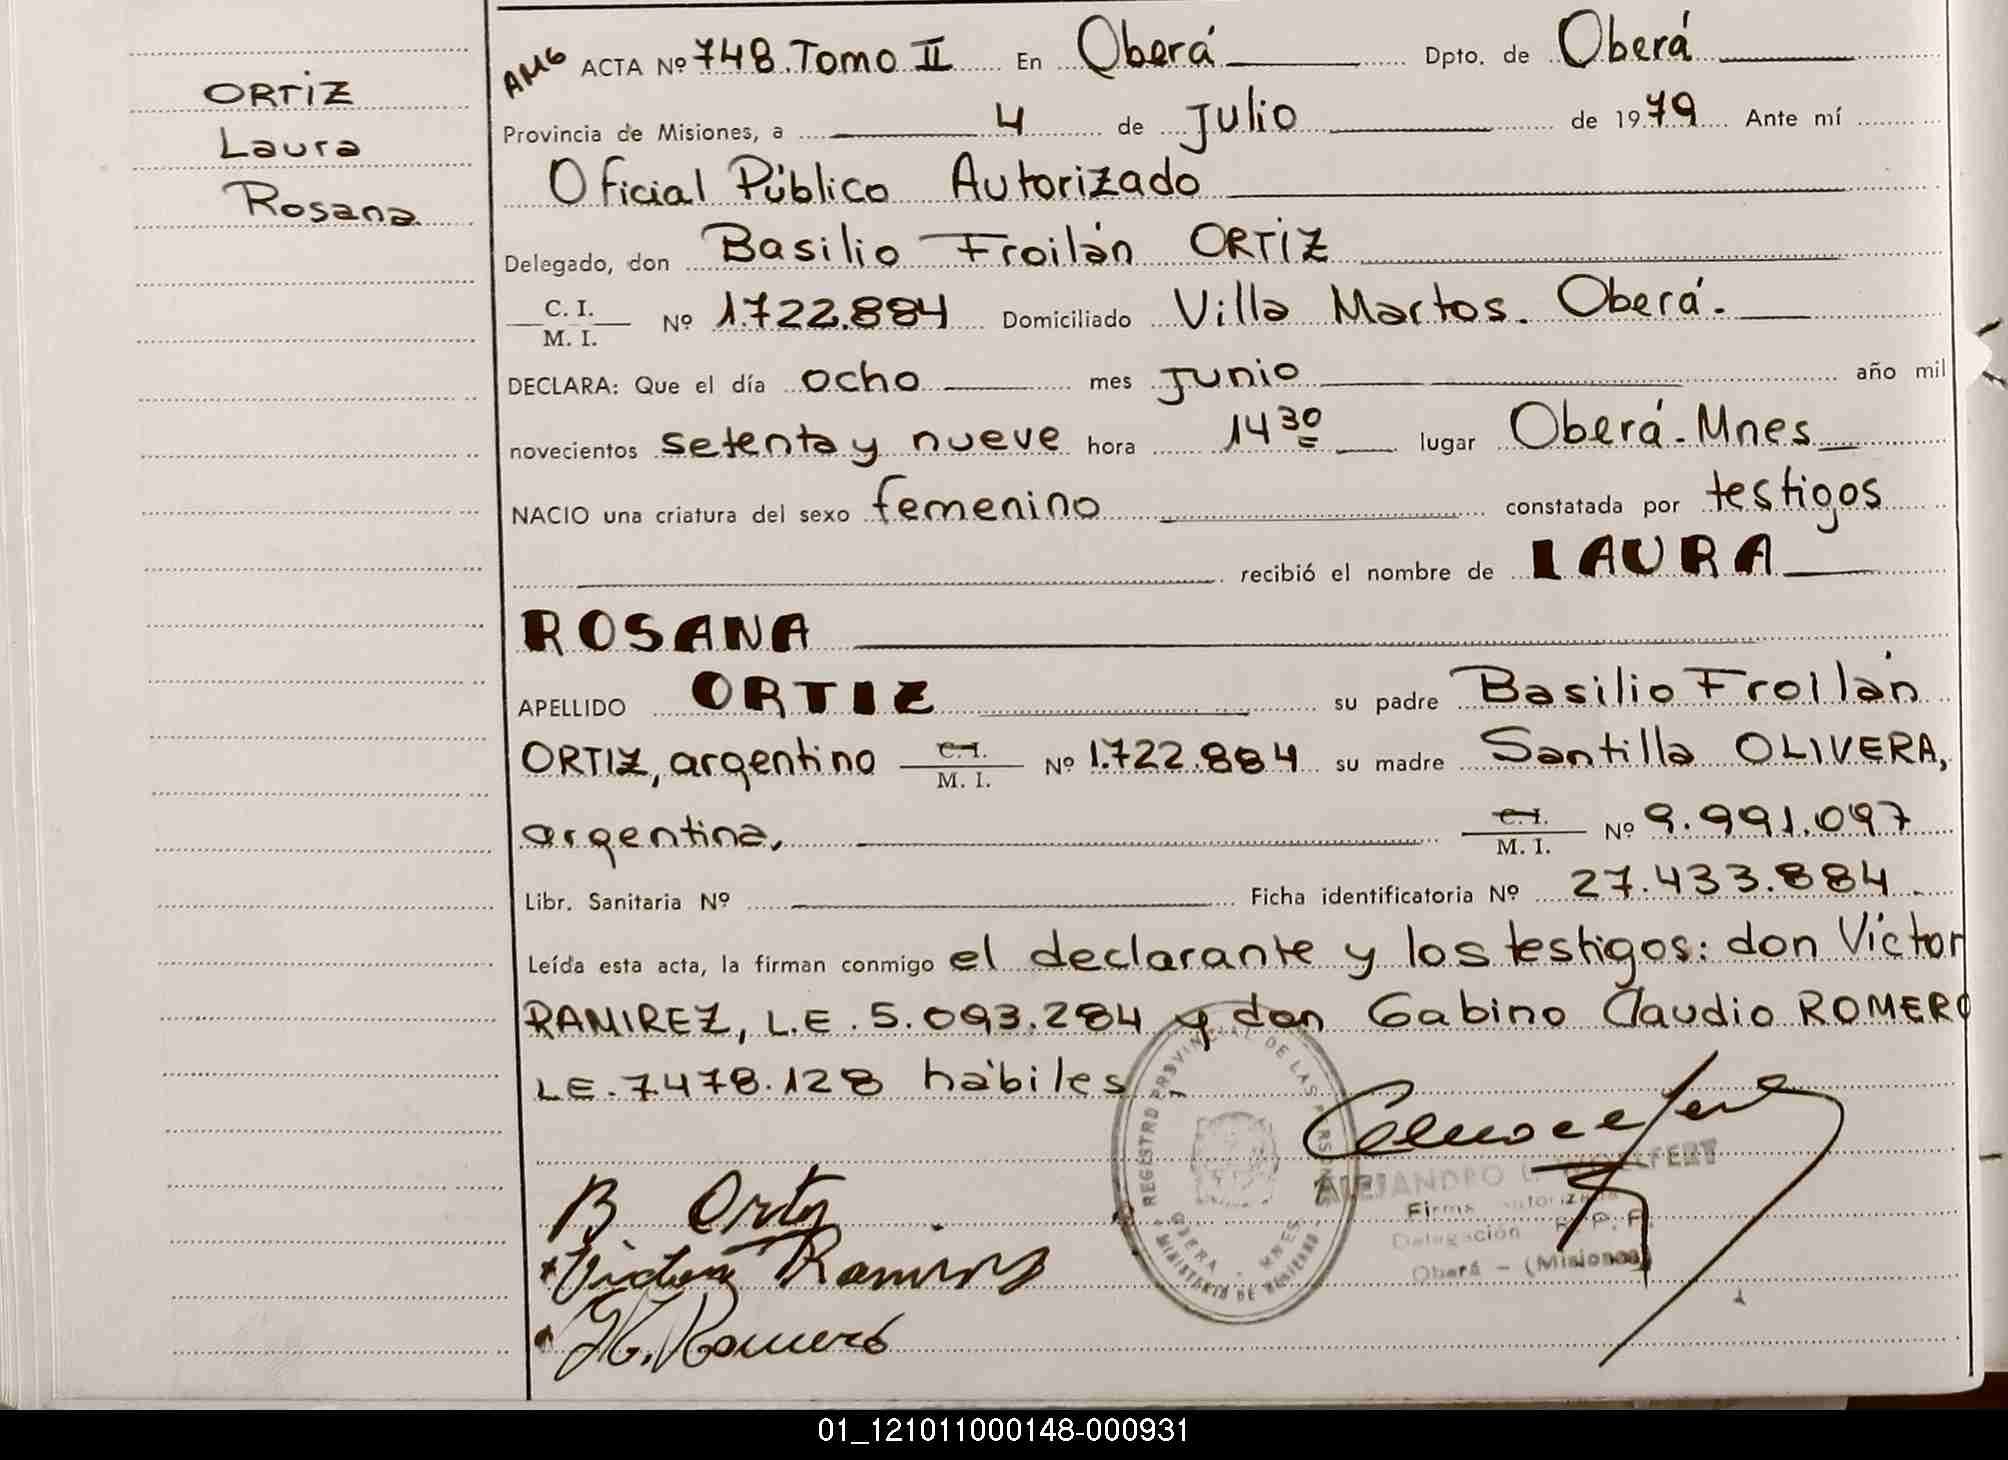 ORTIZ
Laura
Rosana
AMG ACTA Nº 748. Tomo II En Oberá Dpto. de Oberá
Provincia de Misiones, a 4 de Julio de 1979 Ante mí
Oficial Público Autorizado
Delegado, don Basilio Froilán ORTIZ
C. I.
M. I. Nº 1.722.884 Domiciliado Villa Martos. Oberá.
DECLARA: Que el día ocho mes Junio año mil
novecientos setenta y nueve hora 14 30 lugar Oberá - Mnes
NACIO una criatura del sexo femenino constatada por testigos
recibió el nombre de LAURA
ROSANA
APELLIDO ORTIZ su padre Basilio Froilán
ORTIZ, argentino C. I. M. I. Nº 1.722.884 su madre Santilla OLIVERA,
argentina, C. I. M. I. Nº 9.991.097
Libr. Sanitaria Nº Ficha identificatoria Nº 27.433.884
Leída esta acta, la firman conmigo el declarante y los testigos: don Víctor
RAMIREZ, L.E. 5.093.284 y don Gabino Claudio ROMERO
L.E. 7.478.128 hábiles
REGISTRO PROVINCIAL DE LAS PERSONAS
OBERA - MNES
MINISTERIO DE GOBIERNO
ALEJANDRO
Firma Autorizada
Delegación R. P. P.
Oberá - (Misiones)
B Ortiz
Victor Ramirez
Romero
01_121011000148-000931